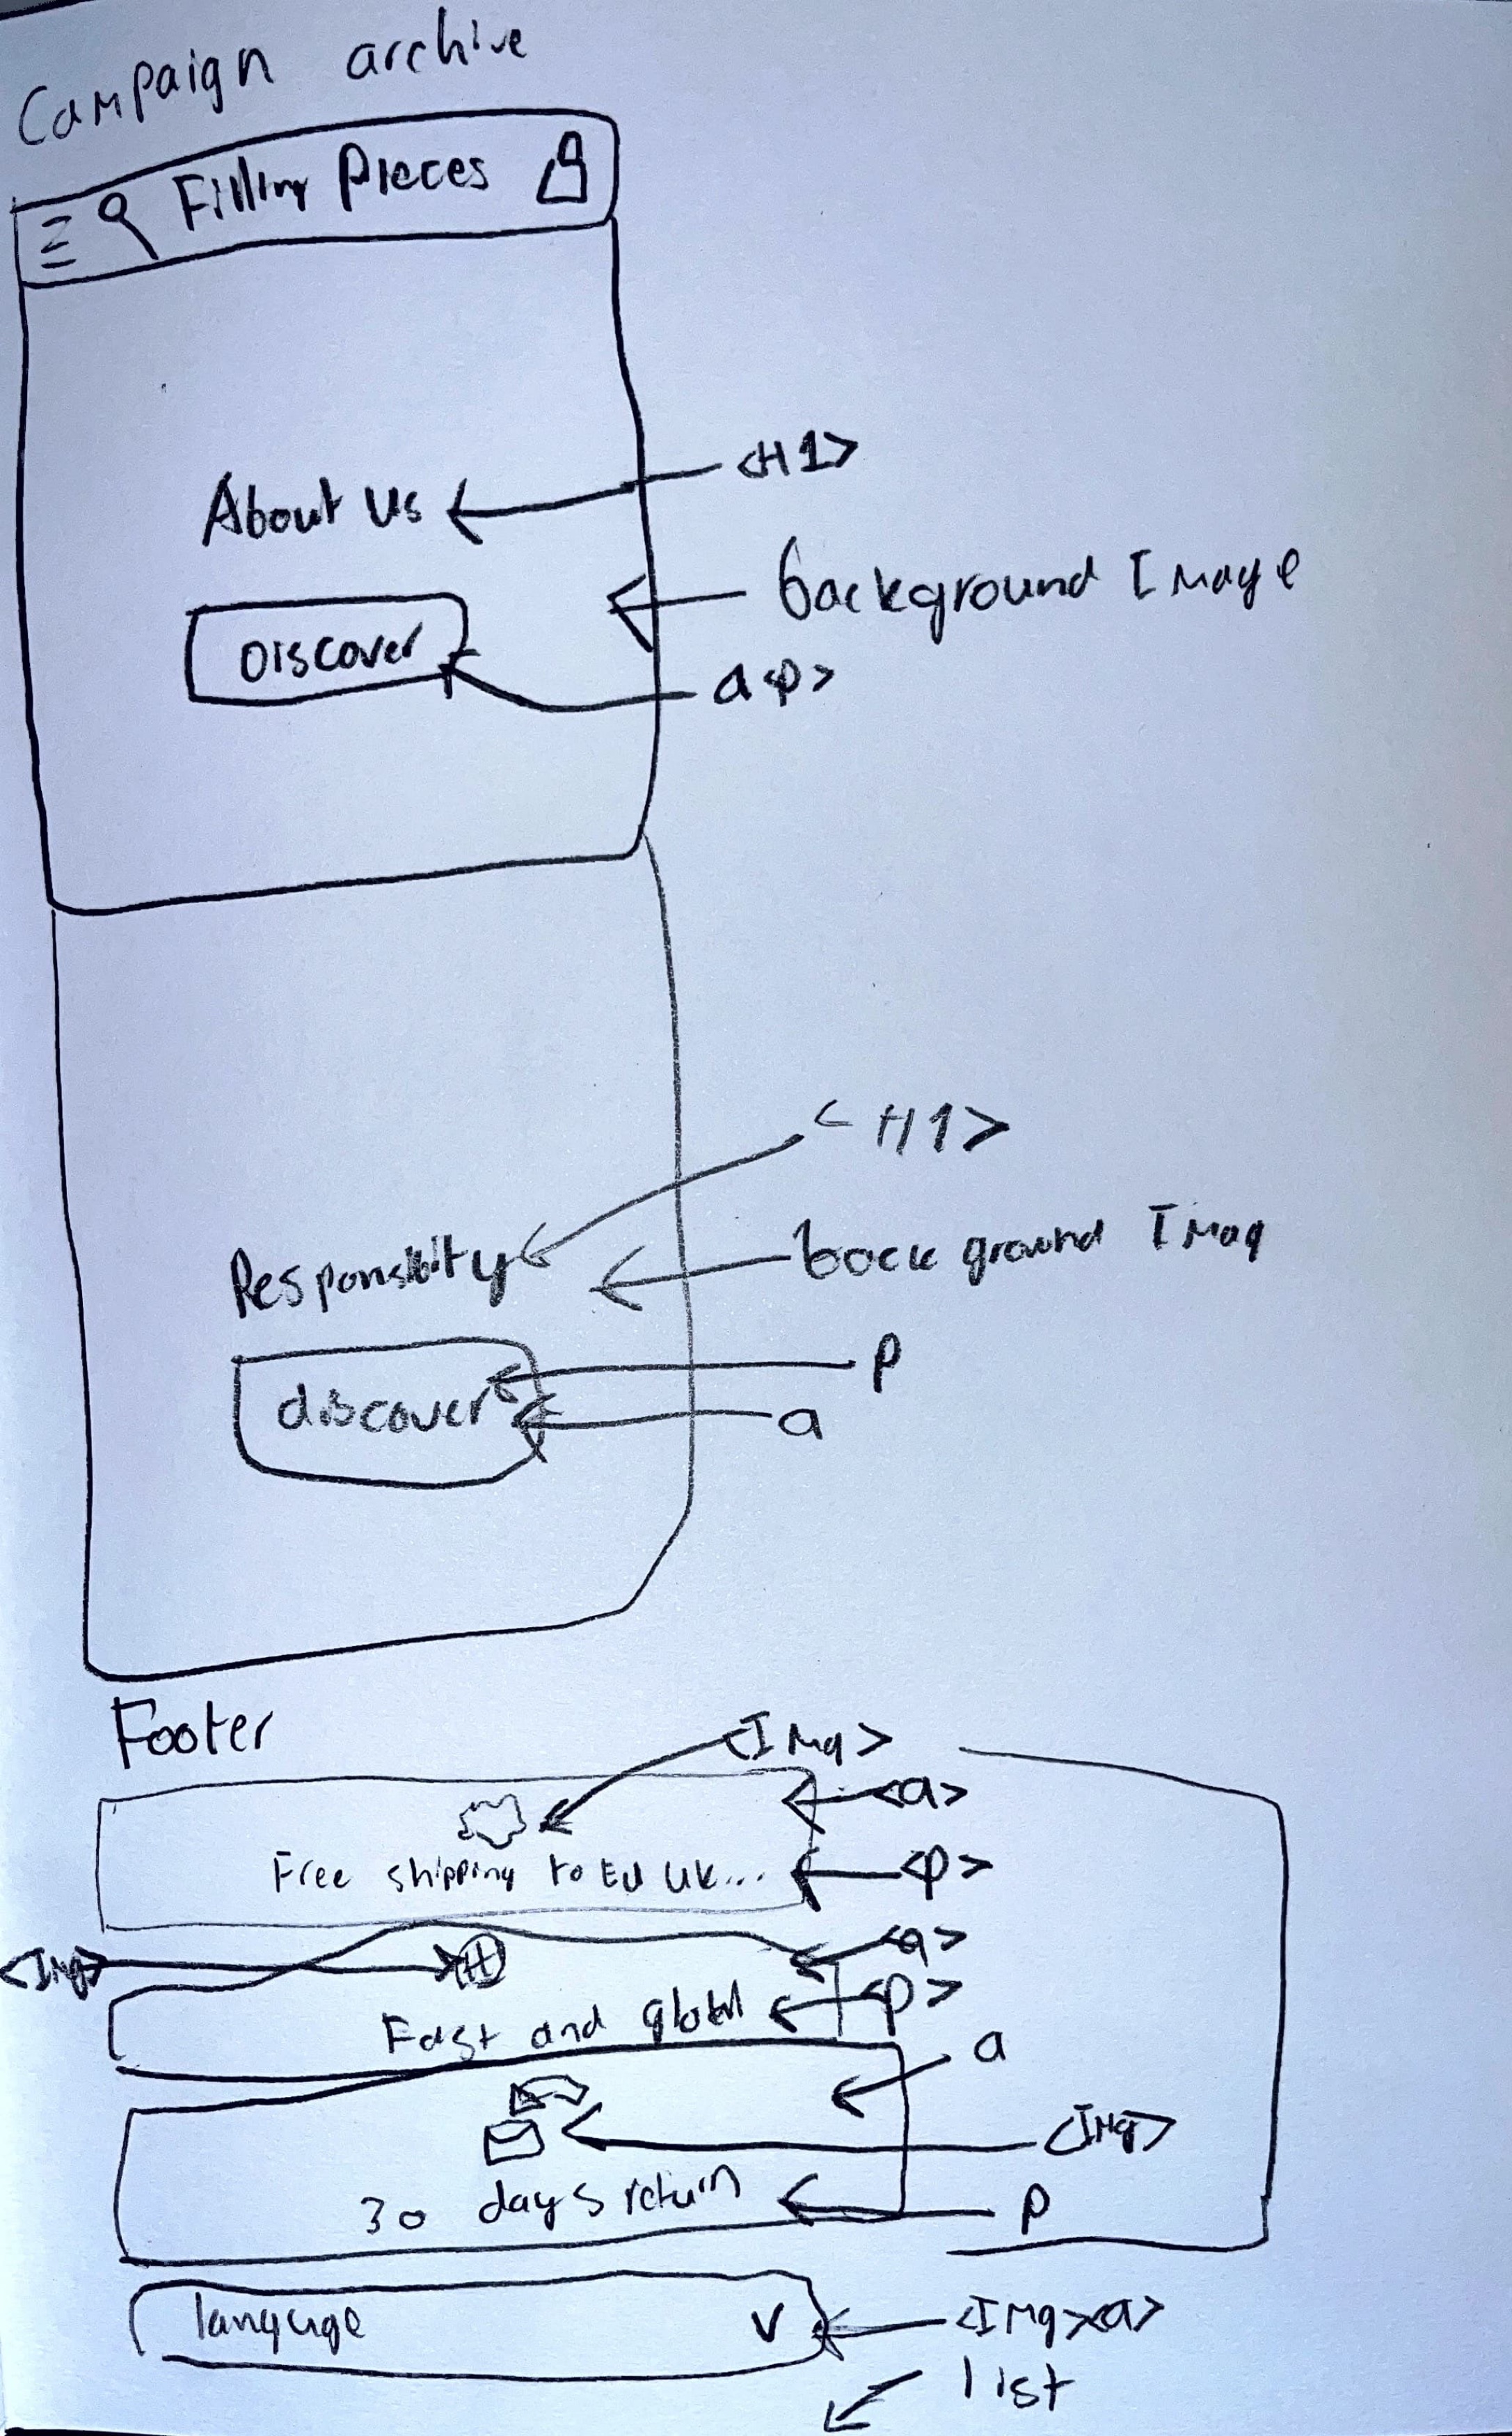 Campaign archive
Filling Pieces
<H1>
About Us
background Image
Discover
a <p>
<H1>
Responsibity
back ground Imag
p
discover
a
Footer
<Img>
<a>
Free shipping to EU UK...
<p>
<a>
<Img>
<p>
Fast and global
a
<Img>
30 days return
p
languge
v
<Img><a>
list